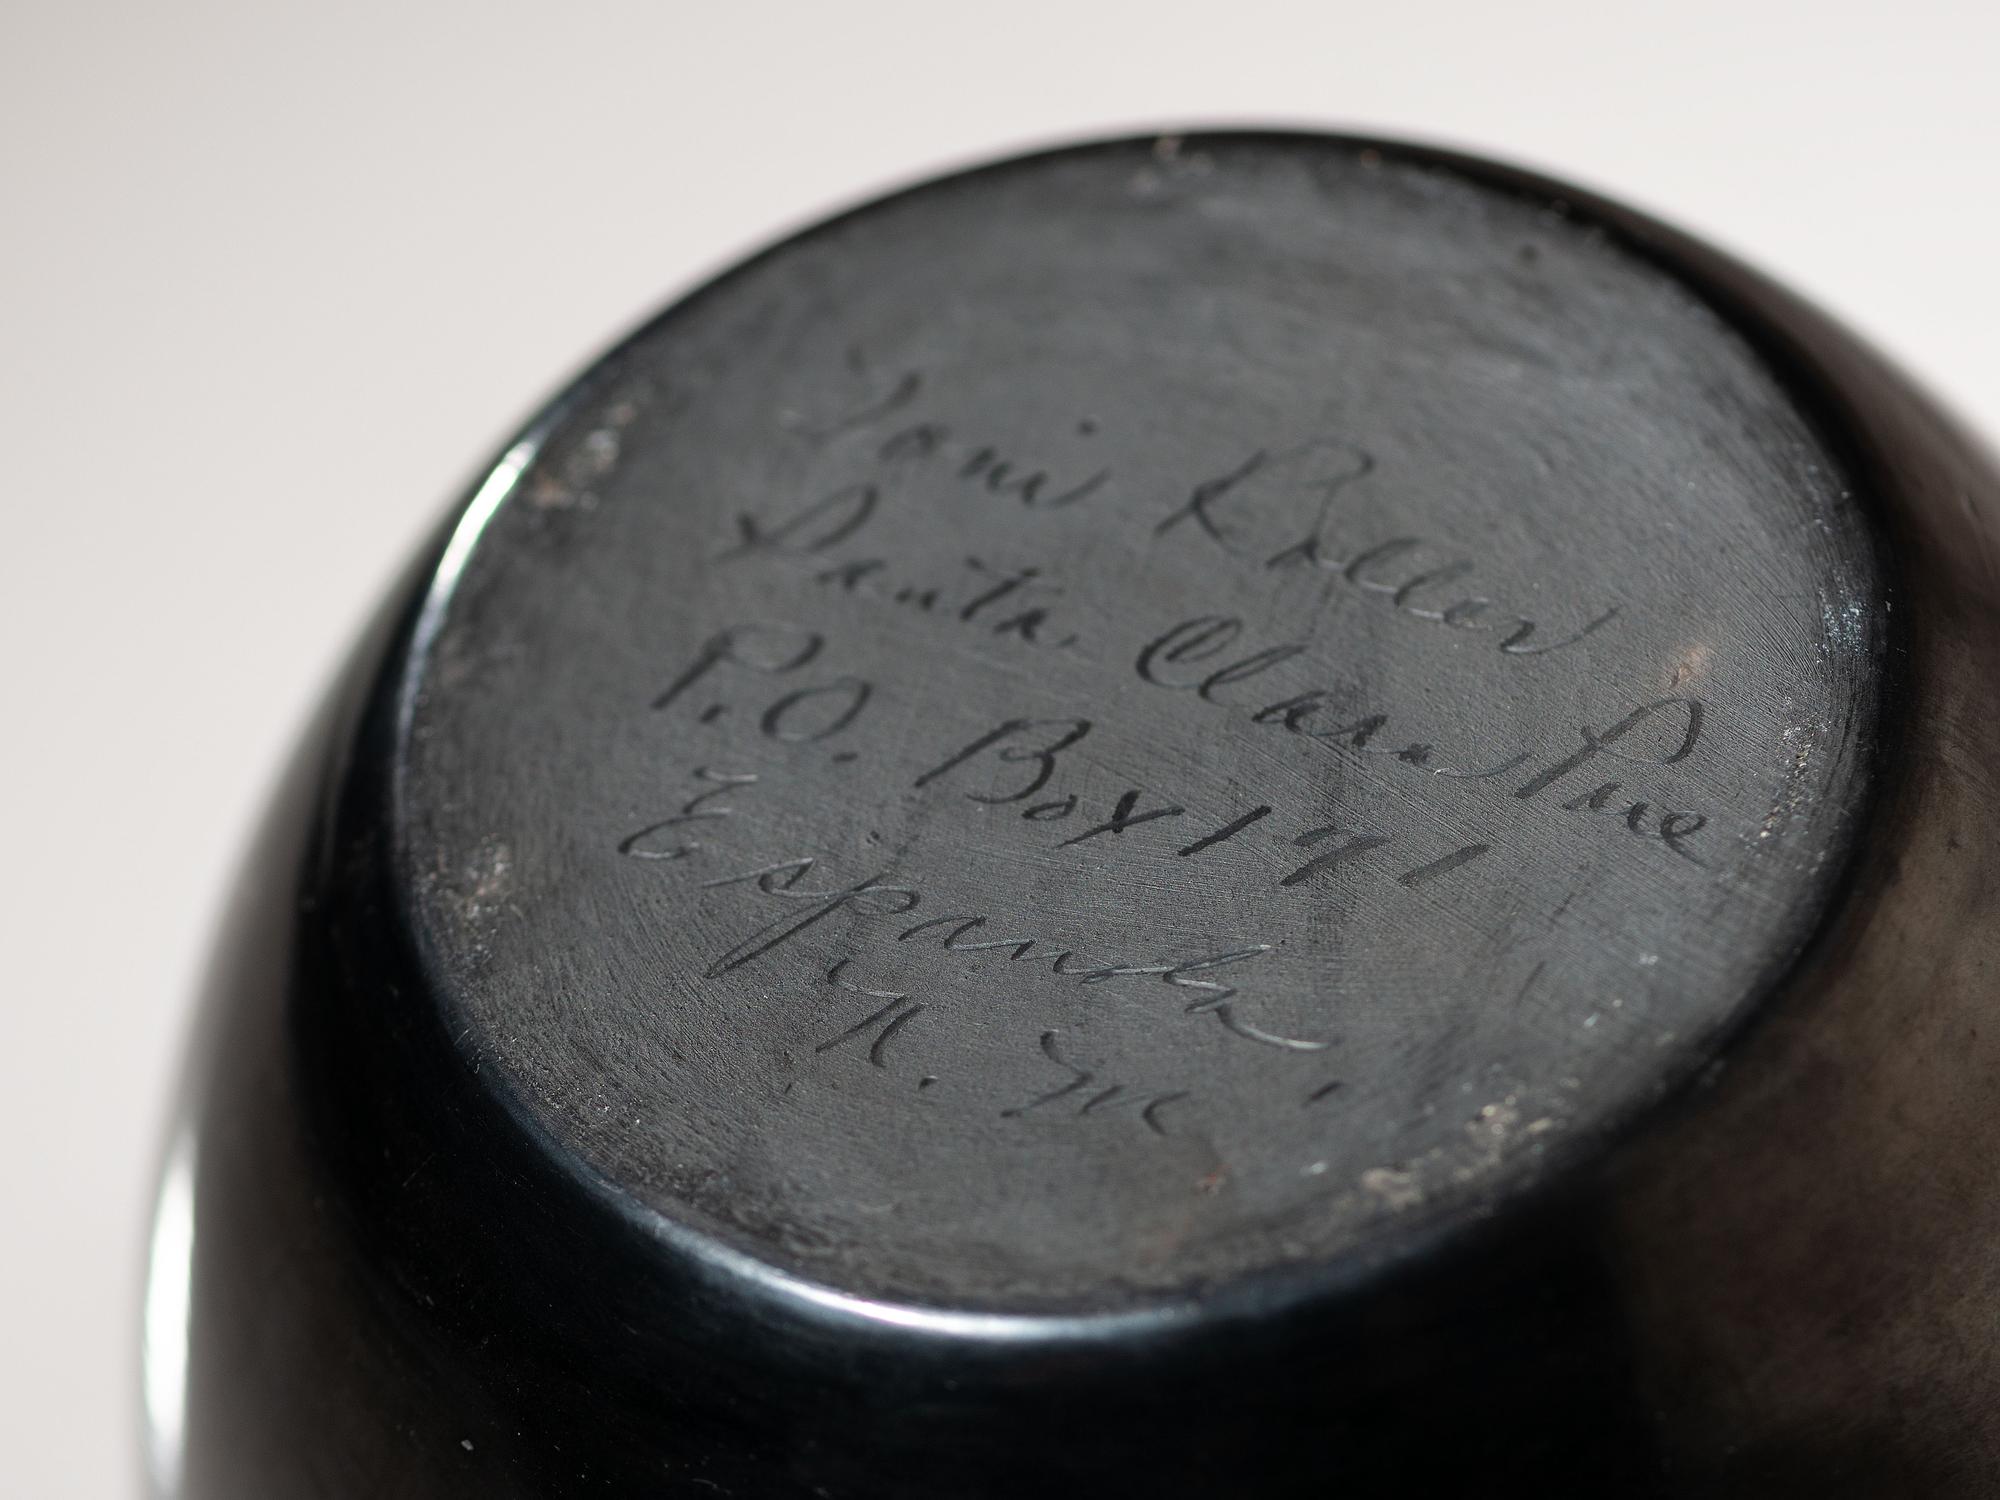 Toni Roller
Santa Clara Pue
P.O. Box 171
Espanola
N. M